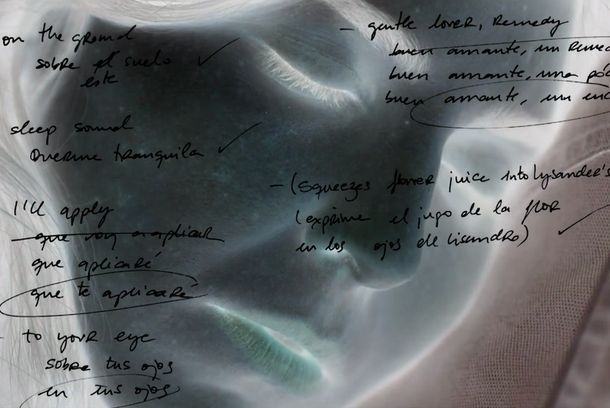 on the ground
sobre el suelo
este
sleep sound
Duerme tranquila
I'll apply
que voy a aplicar
que aplicaré
que te aplicaré
to your eye
sobre tus ojos
en tus ojos
- gentle lover, Remedy
buen amante, un
buen amante, una
buen amante, un
- (Squeezes flower juice into Lysander's
(exprime el jugo de la flor
en los ojos de Lisandro)